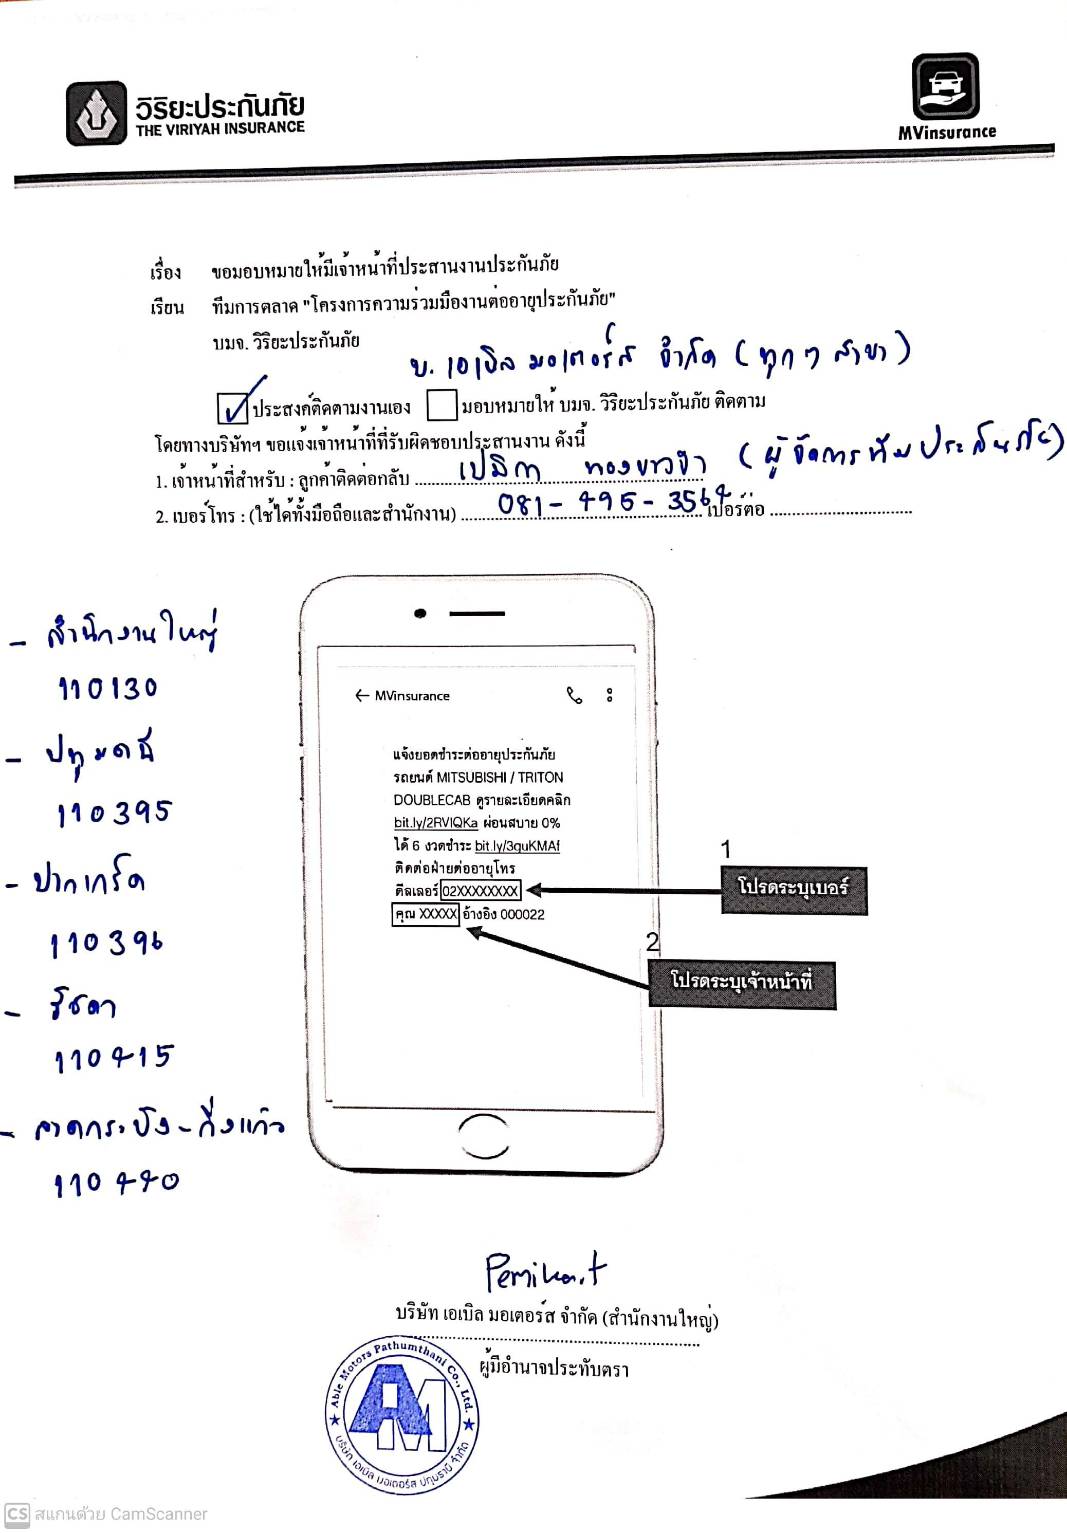 วิริยะประกันภัย
THE VIRIYAH INSURANCE
MVinsurance
เรื่อง ขอมอบหมายให้มีเจ้าหน้าที่ประสานงานประกันภัย
เรียน ทีมการตลาด "โครงการความร่วมมืองานต่ออายุประกันภัย"
บมจ. วิริยะประกันภัย
บ. เอเบิล มอเตอร์ส จำกัด (ทุกๆ สาขา)
ประสงค์ติดตามงานเอง มอบหมายให้ บมจ. วิริยะประกันภัย ติดตาม
โดยทางบริษัทฯ ขอแจ้งเจ้าหน้าที่ที่รับผิดชอบประสานงาน ดังนี้
1. เจ้าหน้าที่สำหรับ : ลูกค้าติดต่อกลับ เปมิกา (ผู้จัดการทีมประกันภัย)
2. เบอร์โทร : (ใช้ได้ทั้งมือถือและสำนักงาน) 081-495-3564 เบอร์ต่อ
- สำนักงานใหญ่
110130
- ปทุมธานี
110395
- ปากเกร็ด
110396
- รัชดา
110415
- ลาดกระบัง-กิ่งแก้ว
110440
← MVinsurance
แจ้งยอดชำระต่ออายุประกันภัย
รถยนต์ MITSUBISHI / TRITON
DOUBLECAB ดูรายละเอียดคลิก
bit.ly/2RVIQKa ผ่อนสบาย 0%
ได้ 6 งวดชำระ bit.ly/3guKMAf
ติดต่อฝ่ายต่ออายุโทร
ดีลเลอร์ 02XXXXXXXX
คุณ XXXXX อ้างอิง 000022
1
โปรดระบุเบอร์
2
โปรดระบุเจ้าหน้าที่
Pemika.t
บริษัท เอเบิล มอเตอร์ส จำกัด (สำนักงานใหญ่)
ผู้มีอำนาจประทับตรา
Able Motors Pathumthani Co., Ltd.
AM
บริษัท เอเบิล มอเตอร์ส ปทุมธานี จำกัด
CS สแกนด้วย CamScanner